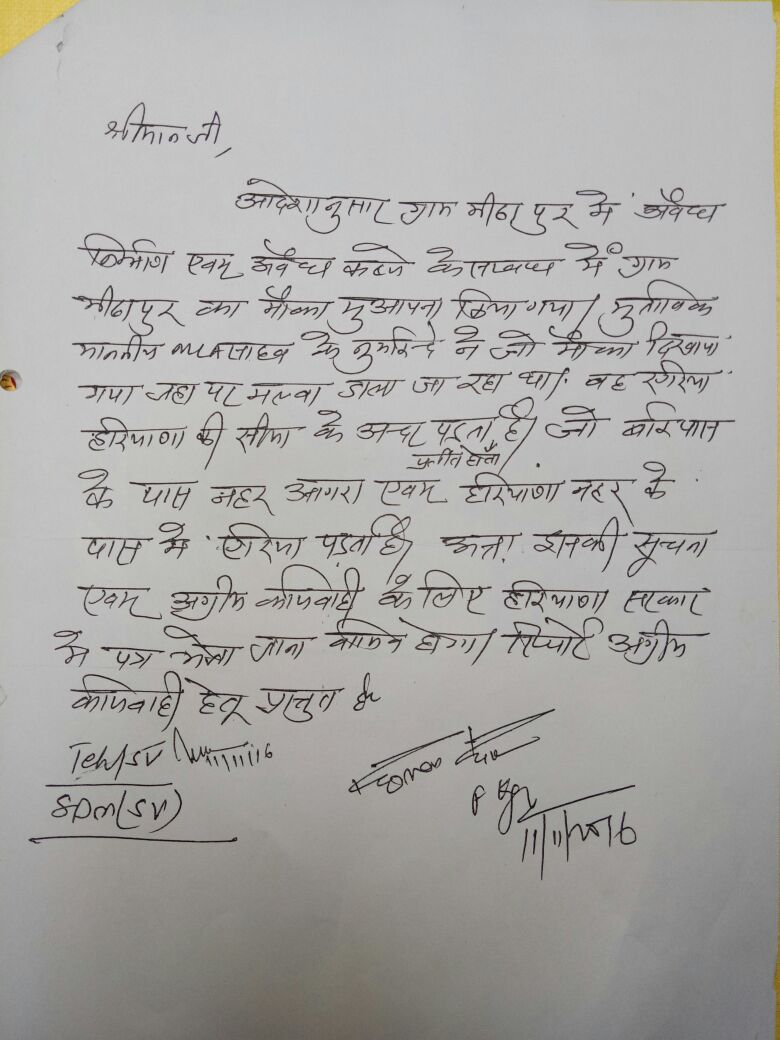 श्रीमान जी,
आदेशानुसार ग्राम मीठापुर में अवैध
निर्माण एवम् अवैध कब्जे के सम्बन्ध में ग्राम
मीठापुर का मौका मुआयना किया गया। मुताबिक
माननीय MLA साहब के नुमाईन्दे ने जो मौका दिखाया
गया जहा पर मलवा डाला जा रहा था। वह एरिया
हरियाणा की सीमा के अन्दर पड़ता है। जो बाईपास
प्रतीत होता
के पास नहर आगरा एवम् हरियाणा नहर के
पास में एरिया पड़ता है। अतः इसकी सूचना
एवम् अग्रीम कार्यवाही के लिए हरियाणा सरकार
में पत्र भेजा जाना होगा। रिपोर्ट अग्रीम
कार्यवाही हेतू प्रस्तुत है
Teh/SV 11/11/16
SDM(SV)
11/11/2016